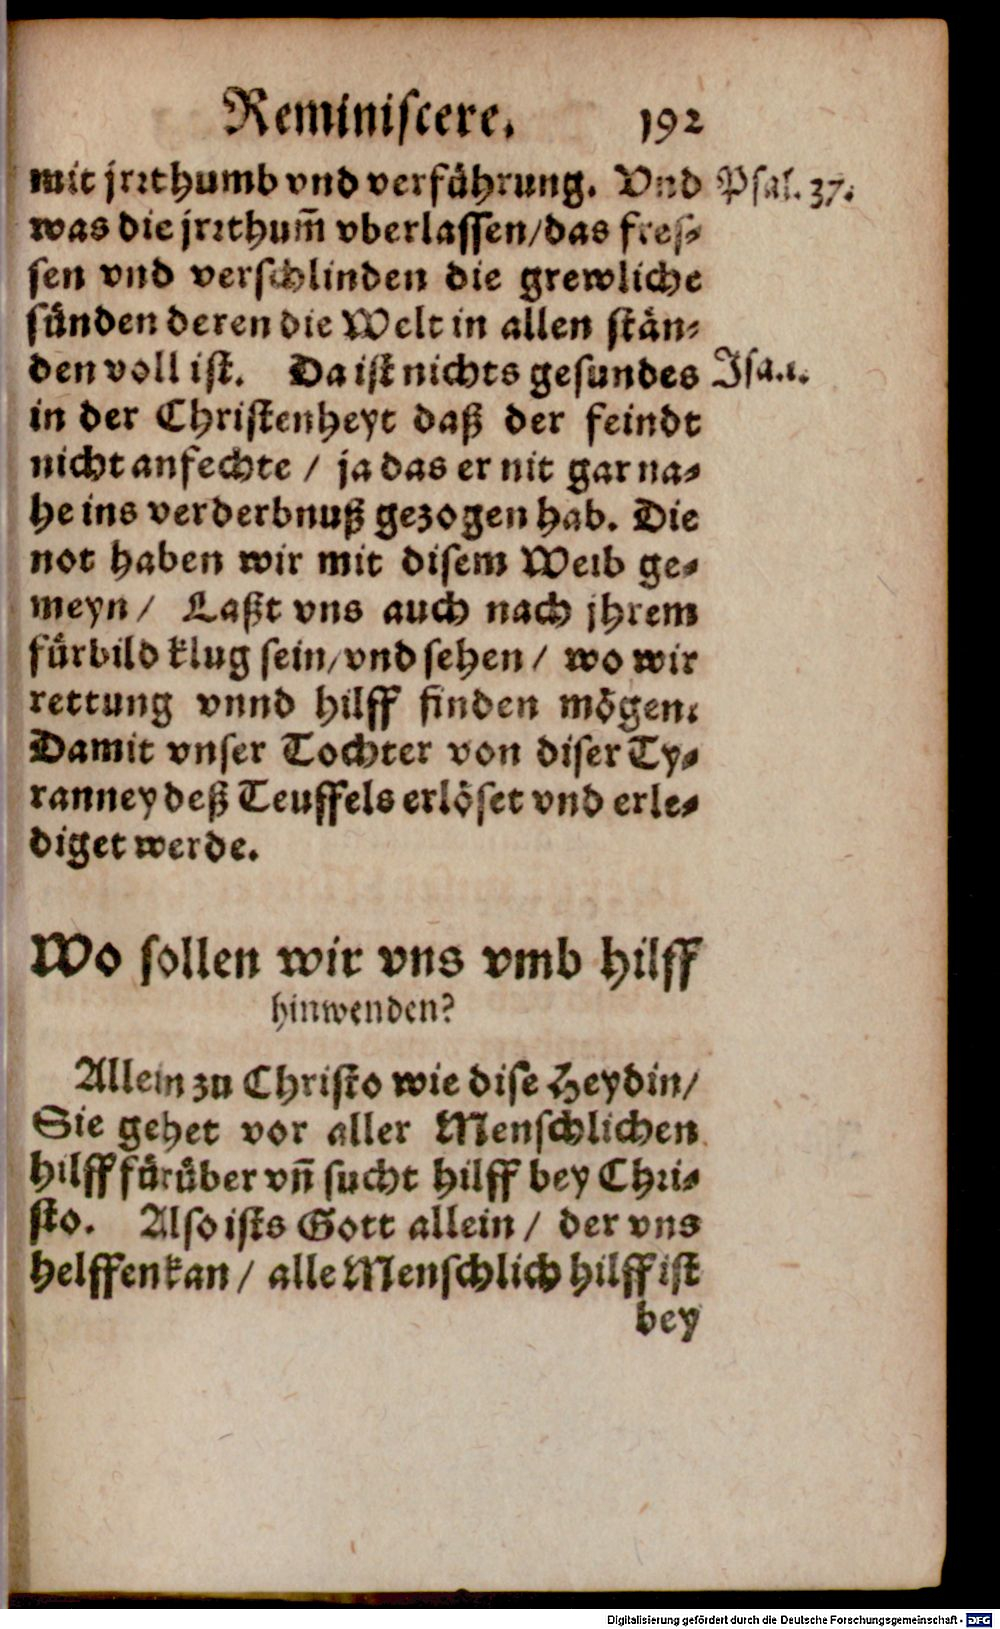 Reminiscere. 192
mit jrrthumb vnd verführung. Vnd Psal. 37.
was die jrrthum̃ vberlassen/das fres-
sen vnd verschlinden die grewliche
sünden deren die Welt in allen stän-
den voll ist. Da ist nichts gesundes Isa. 1.
in der Christenheyt daß der feindt
nicht anfechte / ja das er nit gar na-
he ins verderbnuß gezogen hab. Die
not haben wir mit disem Weib ge-
meyn / Laßt vns auch nach jhrem
fürbild klug sein/vnd sehen / wo wir
rettung vnnd hilff finden mögen.
Damit vnser Tochter von diser Ty-
ranney deß Teuffels erlöset vnd erle-
diget werde.
Wo sollen wir vns vmb hilff
hinwenden?
Allein zu Christo wie dise Heydin/
Sie gehet vor aller Menschlichen
hilff fürüber vñ sucht hilff bey Chri-
sto. Also ists Gott allein / der vns
helffen kan / alle Menschlich hilff ist
bey
Digitalisierung gefördert durch die Deutsche Forschungsgemeinschaft - DFG